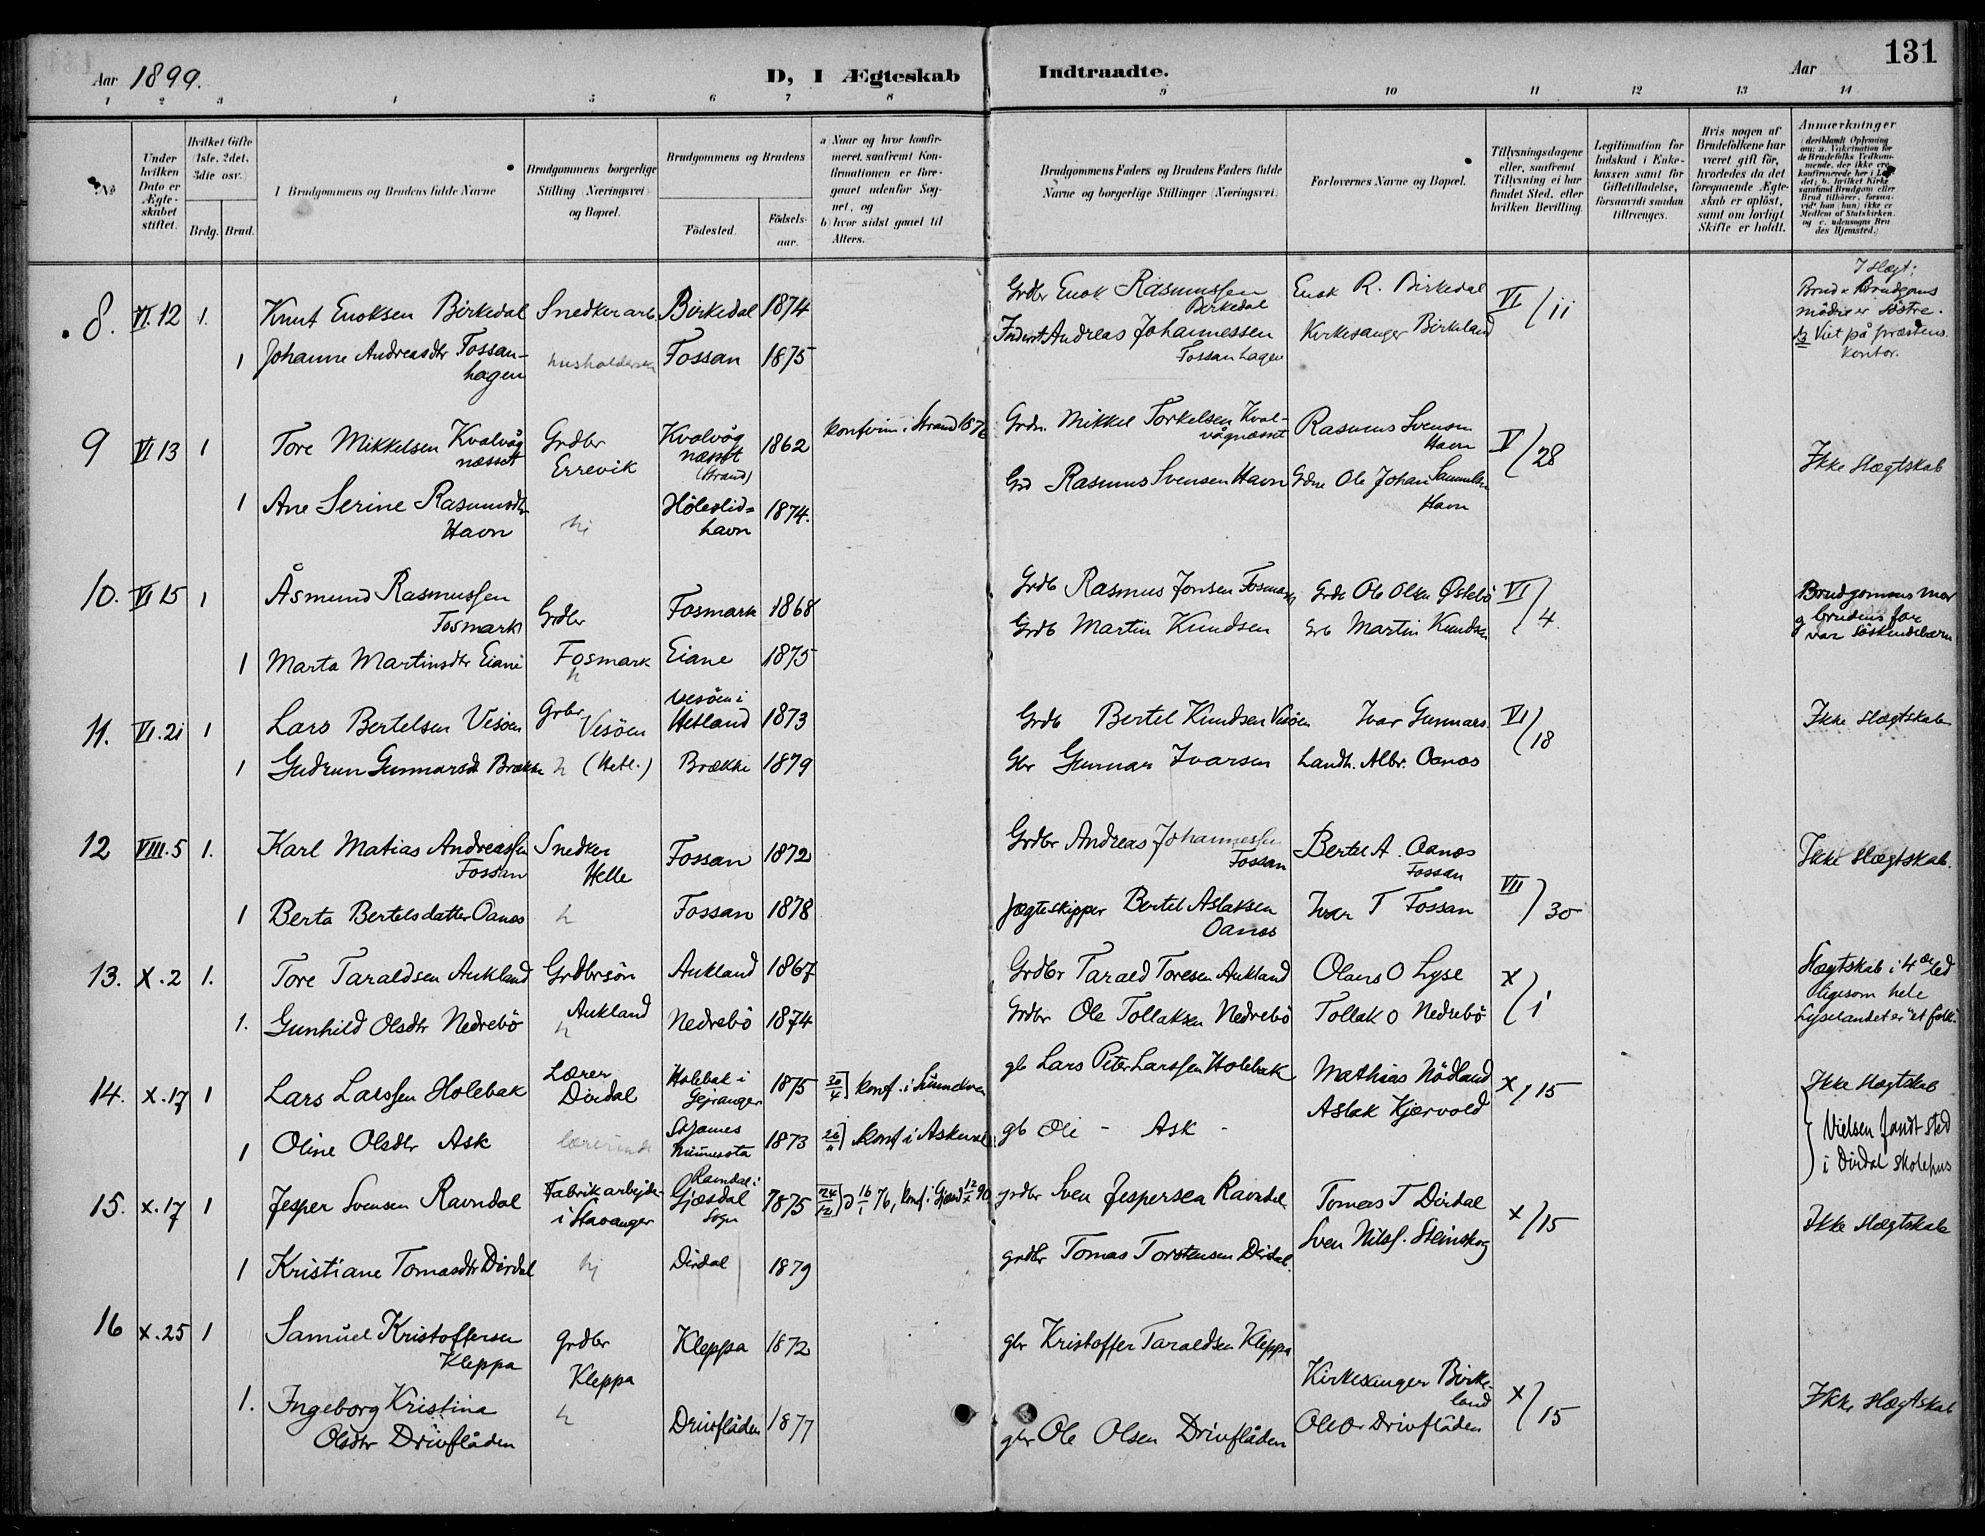 Aar 1899.
D, I Ægteskab Indtraadte.
Aar
131
1 2 3 4 5 6 7 8 9 10 11 12 13 14
No
Under hvilken Dato er Ægteskabet stiftet.
Hvilket Gifte (1ste, 2det, 3die osv.)
Brdg. Brud.
Brudgommens og Brudens fulde Navne
Brudgommens borgerlige Stilling (Næringsvei) og Bopæl.
Brudgommens og Brudens
Fødested.
Fødselsaar.
a) Naar og hvor konfirmeret, saafremt Konfirmationen er foregaaet udenfor Sognet, og
b) hvor sidst gaaet til Alters.
Brudgommens Faders og Brudens Faders fulde Navne og borgerlige Stillinger (Næringsvei).
Forlovernes Navne og Bopæl.
Tillysningsdagene eller, saafremt Tillysning ei har fundet Sted, efter hvilken Bevilling.
Legitimation for Indskud i Enkekassen samt for Giftetilladelse, forsaavidt saadan tiltrænges.
Hvis nogen af Brudefolkene har været gift før, hvorledes da det foregaaende Ægteskab er opløst, samt om lovligt Skifte er holdt.
Anmærkninger
8. VI.12 1. Knut Enoksen Birkedal Snedkerarb. Birkedal 1874
Grdbr Enok Rasmussen Birkedal
Enok R. Birkedal
VI/11
I Slægt: Brud & Brudgoms mødre er søstre.
Viet på præstens kontor.
1 Johanne Andreasdtr Fossanhagen husholdersen Fossan 1875
Inderst Andreas Johannessen Fossanhagen
Kirkesanger Birkeland
9 VI 13 1 Tore Mikkelsen Kvalvågnæsset Grdbr Errevik Kvalvåg næsset (Strand) 1862 konfirm. i Strand 1876
Mikkel Torkelsen Kvalvågnæsset
Rasmus Svensen Havn
V/28
Ikke Slægtskab
1 Ane Serine Rasmusdtr Havn hj Høleslidhavn 1874.
Grd Rasmus Svensen Havn
Ole Johan Samuelsen Havn
10. VI 15 1 Åsmund Rasmussen Fosmark Grdbr Fosmark 1868
Grdb Rasmus Jonsen Fosmark
Grdb Ole Olsen Østebø
VI/4.
Brudgommens mor og brudens far var søskendebarn
1 Marta Martinsdtr Eiane Fosmark h Eiane 1875
Grdb Martin Knudsen
Grb Martin Knudsen
11. VI.21 1 Lars Bertelsen Vesøen Grbr Vesøen Vesøen i Hetland 1873
Grdb Bertel Knudsen Vesøen
Ivar Gunnars.
VI/18
Ikke Slægtskab
1 Gudrun Gunnarsdtr Brække h (Hetl.) Brække 1879
Gbr Gunnar Ivarsen
Landh. Albr. Oanes
12 VIII.5 1. Karl Matias Andreassen Fossan Snedker Helle Fossan 1872
Grdbr Andreas Johannessen Fossan
Bertel A. Oanes Fossan
VII/30
Ikke Slægtskab.
1 Berta Bertelsdatter Oanes h Fossan 1878
Jægteskipper Bertel Aslaksen Oanes
Ivar T Fossan
13. X.2 1. Tore Taraldsen Aukland Grdbrsøn Aukland Aukland 1867
Grdbr Tarald Toresen Aukland
Olaus O Lyse
X/1
Slægtskab i 4de led ligesom hele Lyselandet er et folk.
1. Gunhild Olsdtr Nedrebö h Nedrebö 1874
Grdbr Ole Tollaksen Nedrebö
Tollak O Nedrebö
14. X.17 1 Lars Larssen Holebak Lærer Dirdal Holebak i Geiranger 1875 20/4] konf. i Sunnelven
gb Lars Peter Larssen Holebak
Mathias Nødland
Aslak Kjærvold
X/15
Ikke Slægtskab
Vielsen fandt sted i Dirdal skolehus
1 Oline Olsdtr Ask lærerinde Minnesota 1873 konf i Askevold
gb Ole - Ask -
15. X.17 1 Jesper Svensen Ravndal Fabrikarbejder i Stavanger Ravndal i Gjæsdal Sogn 1875 24/12] d 16/1 76, konf. i Gjæsd 12/X 90
grdbr Sven Jespersen Ravndal
Tomas T Dirdal
X/15
Ikke Slægtskab
1 Kristiane Tomasdtr Dirdal hj Dirdal 1879
grdbr Tomas Torstensen Dirdal.
Sven Nilss. Steinskog
16 X.25 1 Samuel Kristoffersen Kleppa Grdbr Kleppa Kleppa 1872
gbr Kristoffer Taraldsen Kleppa
Kirkesanger Birkeland
X/15
Ikke Slægtskab
1. Ingeborg Kristina Olsdtr Drivflåden h Drivflåden 1877
gbr Ole Olsen Drivflåden
Ole Or Drivflåden